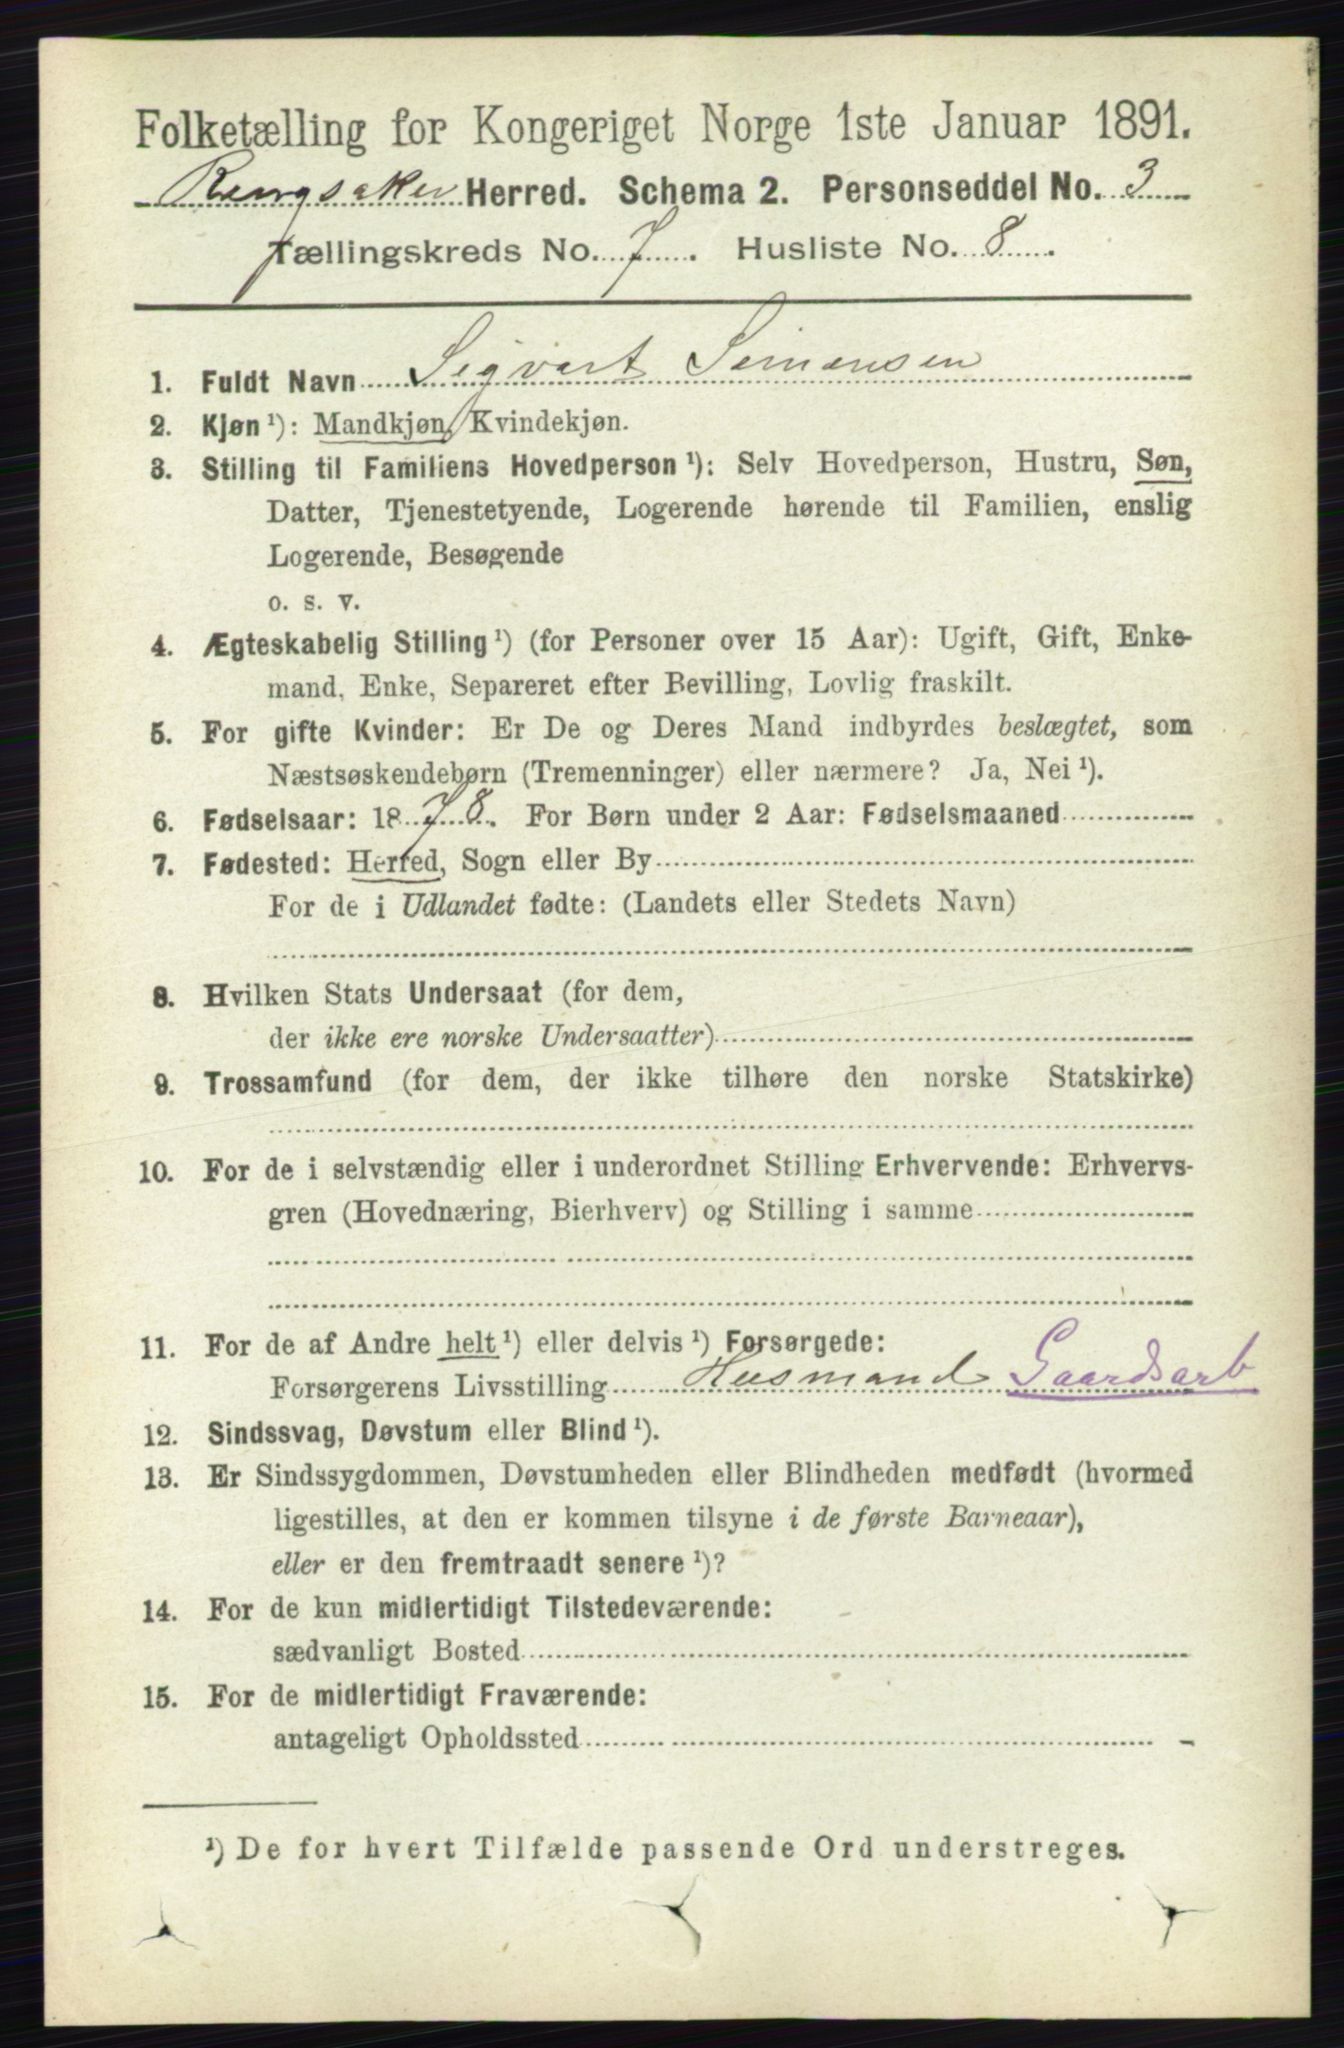 Folketælling for Kongeriget Norge 1ste Januar 1891.
Ringsaker Herred. Schema 2. Personseddel No. 3
Tællingskreds No. 7. Husliste No. 8.
1. Fuldt Navn Sigvart Simensen
2. Kjøn ¹): Mandkjøn, Kvindekjøn.
3. Stilling til Familiens Hovedperson ¹): Selv Hovedperson, Hustru, Søn,
Datter, Tjenestetyende, Logerende hørende til Familien, enslig
Logerende, Besøgende
o. s. v.
4. Ægteskabelig Stilling ¹) (for Personer over 15 Aar): Ugift, Gift, Enke-
mand, Enke, Separeret efter Bevilling, Lovlig fraskilt.
5. For gifte Kvinder: Er De og Deres Mand indbyrdes beslægtet, som
Næstsøskendebørn (Tremenninger) eller nærmere? Ja, Nei ¹).
6. Fødselsaar: 1878. For Børn under 2 Aar: Fødselsmaaned
7. Fødested: Herred, Sogn eller By
For de i Udlandet fødte: (Landets eller Stedets Navn)
8. Hvilken Stats Undersaat (for dem,
der ikke ere norske Undersaatter)
9. Trossamfund (for dem, der ikke tilhøre den norske Statskirke)
10. For de i selvstændig eller i underordnet Stilling Erhvervende: Erhvervs-
gren (Hovednæring, Bierhverv) og Stilling i samme
11. For de af Andre helt ¹) eller delvis ¹) Forsørgede:
Forsørgerens Livsstilling Husmand Gaardsarb
12. Sindssvag, Døvstum eller Blind ¹).
13. Er Sindssygdommen, Døvstumheden eller Blindheden medfødt (hvormed
ligestilles, at den er kommen tilsyne i de første Barneaar),
eller er den fremtraadt senere ¹)?
14. For de kun midlertidigt Tilstedeværende:
sædvanligt Bosted
15. For de midlertidigt Fraværende:
antageligt Opholdssted
¹) De for hvert Tilfælde passende Ord understreges.